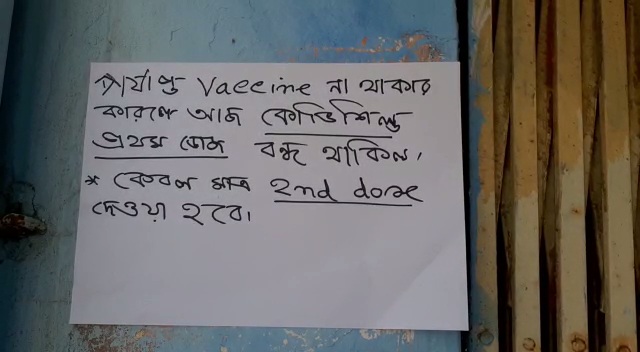 পর্যাপ্ত Vaccine না থাকার
কারণে আজ কোভিশিল্ড
প্রথম ডোজ বন্ধ থাকিল,
* কেবল মাত্র 2nd dose
দেওয়া হবে।